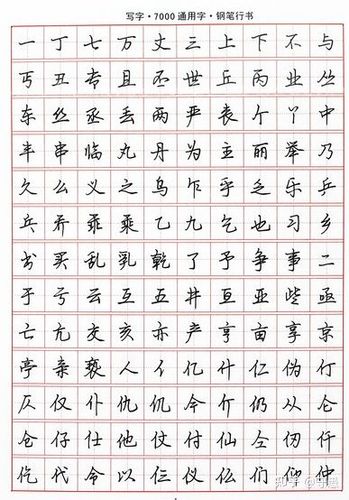 写字·7000通用字·钢笔行书
一丁七万丈三上下不与
丐丑专且丕世丘丙业丛
东丝丞丢两严丧个丫中
丰串临丸丹为主丽举乃
久么义之乌乍乎乏乐乒
乓乔乖乘乙九乞也习乡
书买乱乳乾了予争事二
于亏云互五井亘亚些亟
亡亢交亥亦产亨亩享京
亭亲亵人亻亿什仁仂仃
仄仅仆仇仉今介仍从仑
仓仔仕他仗付仙仝仞仟
仡代令以仨仪仫们仰仲
知乎